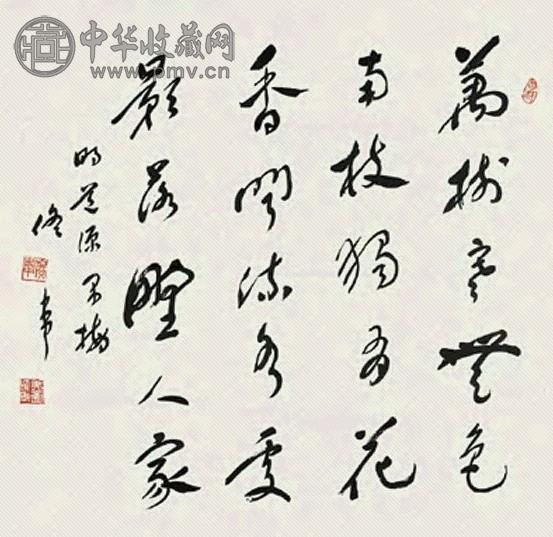 萬樹寒無色
南枝獨有花
香聞流水處
影落野人家
明道源早梅
修常
中华收藏网
www.omv.cn